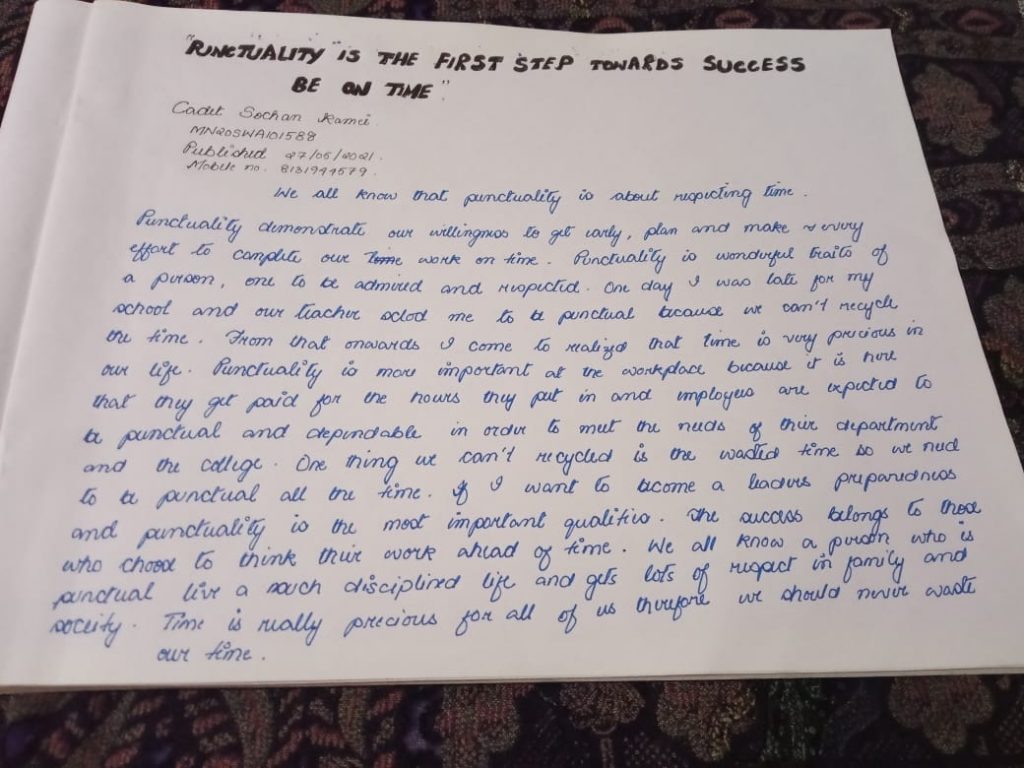 "PUNCTUALITY" IS THE FIRST STEP TOWARDS SUCCESS
BE ON TIME"
Cadet Sochan Kamei.
MN20SWA101588
Published 27/05/2021.
Mobile no. 8131944579.
We all know that punctuality is about respecting time.
Punctuality demonstrate our willingness to get early, plan and make every
effort to complete our Time work on time. Punctuality is wonderful traits of
a person, one to be admired and respected. One day I was late for my
school and our teacher sclod me to be punctual because we can't recycle
the time. From that onwards I come to realized that time is very precious in
our life. Punctuality is more important at the workplace because it is here
that they get paid for the hours they put in and employees are expected to
be punctual and dependable in order to meet the needs of their department
and the college. One thing we can't recycled is the wasted time so we need
to be punctual all the time. If I want to become a leaders preparedness
and punctuality is the most important qualities. The success belongs to those
who choose to think their work ahead of time. We all know a person who is
punctual live a such disciplined life and gets lots of respect in family and
society. Time is really precious for all of us therefore we should never waste
our time.